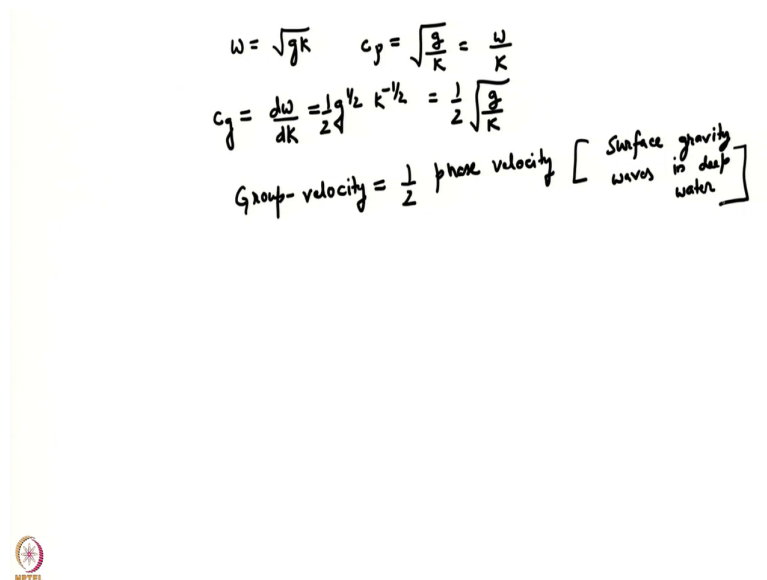 ω = √gk    cₚ = √(g/k) = ω/k
c_g = dω/dk = 1/2 g^1/2 k^-1/2 = 1/2 √(g/k)
Group-velocity = 1/2 phase velocity [ Surface gravity
waves in deep
water ]
NPTEL